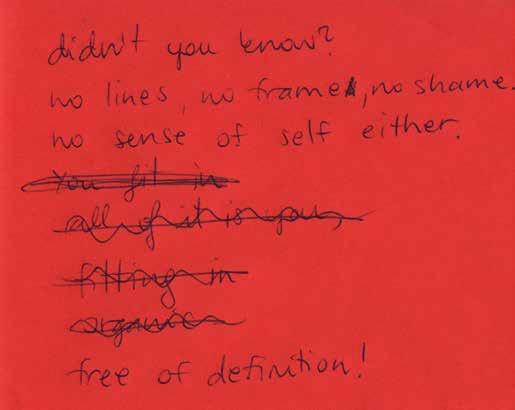 didn't you know?
no lines, no frame, no shame.
no sense of self either.
You fit in
all of it is you,
fitting in
organic
free of definition!